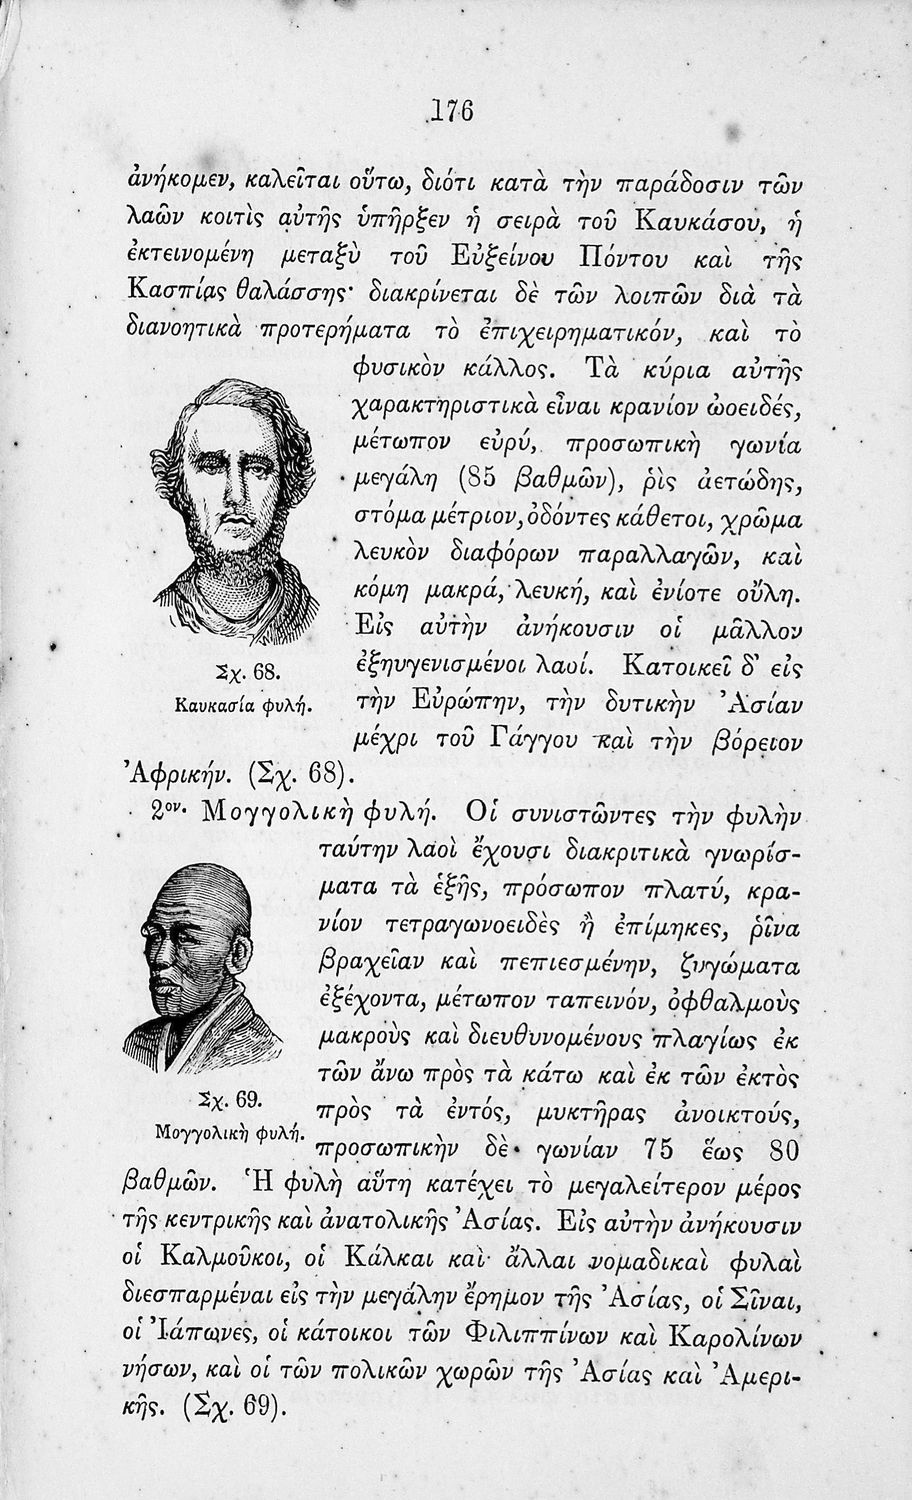 176
ἀνήκομεν, καλεῖται οὕτω, διότι κατὰ τὴν παράδοσιν τῶν
λαῶν κοιτὶς αὐτῆς ὑπῆρξεν ἡ σειρὰ τοῦ Καυκάσου, ἡ
ἐκτεινομένη μεταξὺ τοῦ Εὐξείνου Πόντου καὶ τῆς
Κασπίας θαλάσσης· διακρίνεται δὲ τῶν λοιπῶν διὰ τὰ
διανοητικὰ προτερήματα τὸ ἐπιχειρηματικόν, καὶ τὸ
φυσικὸν κάλλος. Τὰ κύρια αὐτῆς
χαρακτηριστικὰ εἶναι κρανίον ὠοειδές,
μέτωπον εὐρύ, προσωπικὴ γωνία
μεγάλη (85 βαθμῶν), ῥὶς ἀετώδης,
στόμα μέτριον, ὀδόντες κάθετοι, χρῶμα
λευκὸν διαφόρων παραλλαγῶν, καὶ
κόμη μακρά, λευκή, καὶ ἐνίοτε οὔλη.
Εἰς αὐτὴν ἀνήκουσιν οἱ μᾶλλον
ἐξηυγενισμένοι λαοί. Κατοικεῖ δ' εἰς
τὴν Εὐρώπην, τὴν δυτικὴν Ἀσίαν
μέχρι τοῦ Γάγγου καὶ τὴν βόρειον
Ἀφρικήν. (Σχ. 68).
Σχ. 68.
Καυκασία φυλή.
2ον. Μογγολικὴ φυλή. Οἱ συνιστῶντες τὴν φυλὴν
ταύτην λαοὶ ἔχουσι διακριτικὰ γνωρίσ-
ματα τὰ ἑξῆς, πρόσωπον πλατύ, κρα-
νίον τετραγωνοειδὲς ἢ ἐπίμηκες, ῥῖνα
βραχεῖαν καὶ πεπιεσμένην, ζυγώματα
ἐξέχοντα, μέτωπον ταπεινόν, ὀφθαλμοὺς
μακροὺς καὶ διευθυνομένους πλαγίως ἐκ
τῶν ἄνω πρὸς τὰ κάτω καὶ ἐκ τῶν ἐκτὸς
πρὸς τὰ ἐντός, μυκτῆρας ἀνοικτούς,
προσωπικὴν δὲ γωνίαν 75 ἕως 80
βαθμῶν. Ἡ φυλὴ αὕτη κατέχει τὸ μεγαλείτερον μέρος
τῆς κεντρικῆς καὶ ἀνατολικῆς Ἀσίας. Εἰς αὐτὴν ἀνήκουσιν
οἱ Καλμοῦκοι, οἱ Κάλκαι καὶ ἄλλαι νομαδικαὶ φυλαὶ
διεσπαρμέναι εἰς τὴν μεγάλην ἔρημον τῆς Ἀσίας, οἱ Σῖναι,
οἱ Ἰάπωνες, οἱ κάτοικοι τῶν Φιλιππίνων καὶ Καρολίνων
νήσων, καὶ οἱ τῶν πολικῶν χωρῶν τῆς Ἀσίας καὶ Ἀμερι-
κῆς. (Σχ. 69).
Σχ. 69.
Μογγολικὴ φυλή.